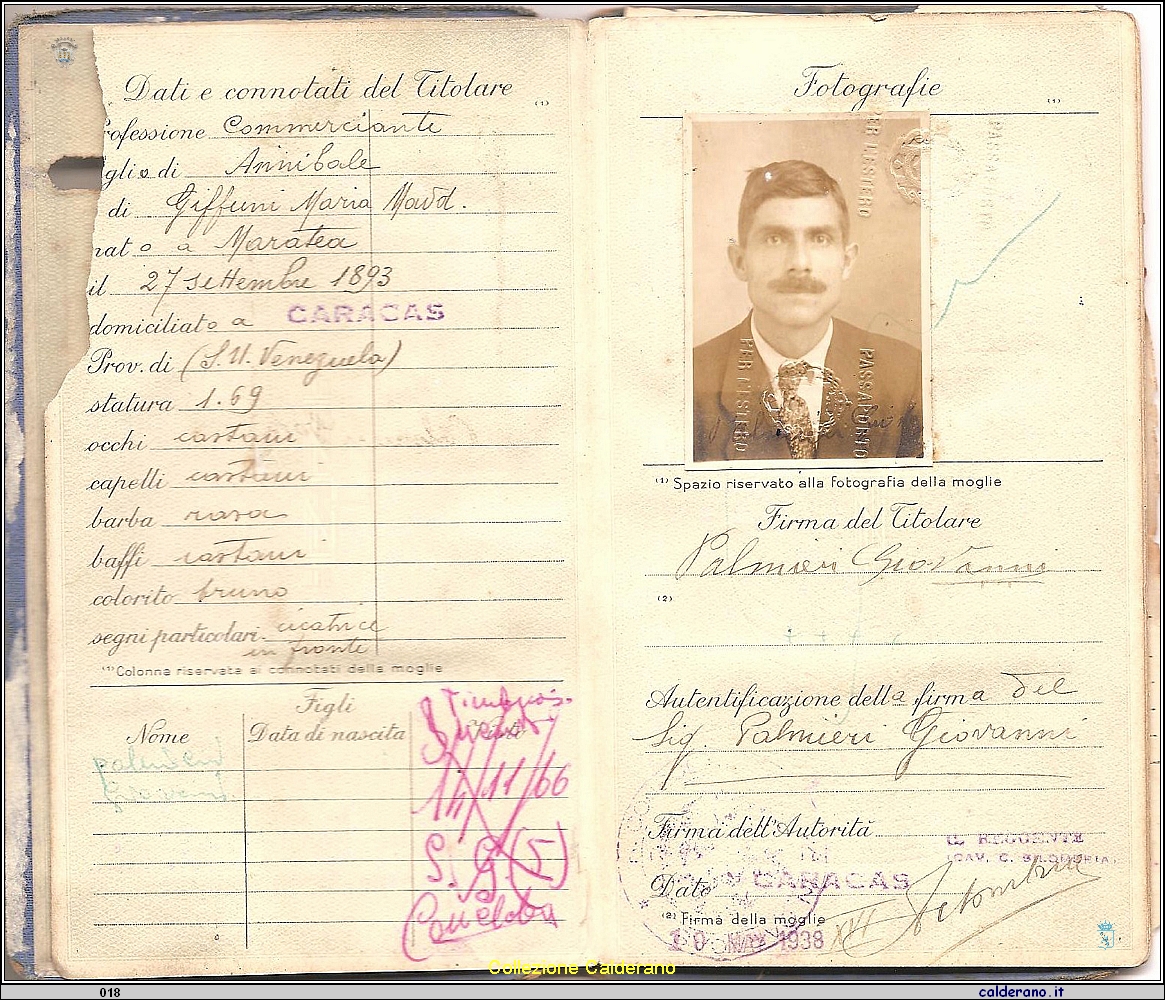 Dati e connotati del Titolare
(1)
rofessione Commerciante
glio di Annibale
di Giffuni Maria Madd.
nato a Maratea
il 27 settembre 1893
domiciliato a CARACAS
Prov. di (S.U. Venezuela)
statura 1.69
occhi castani
capelli castani
barba rasa
baffi castani
colorito bruno
segni particolari cicatrice
in fronte
(1) Colonna riservata ai connotati della moglie
Figli
Nome Data di nascita
Palmieri
Giovanni
14/11/66
S. G. (5)
Fotografie
(1)
PER L'ESTERO
PASSAPORTO
PER L'ESTERO
PASSAPORTO
(1) Spazio riservato alla fotografia della moglie
Firma del Titolare
Palmieri Giovanni
(2)
Autentificazione della firma del
Sig. Palmieri Giovanni
Firma dell'Autorità
IL REGGENTE
Data CARACAS
(2) Firma della moglie
10 MAY 1938 XVI
Collezione Calderano
018
calderano.it